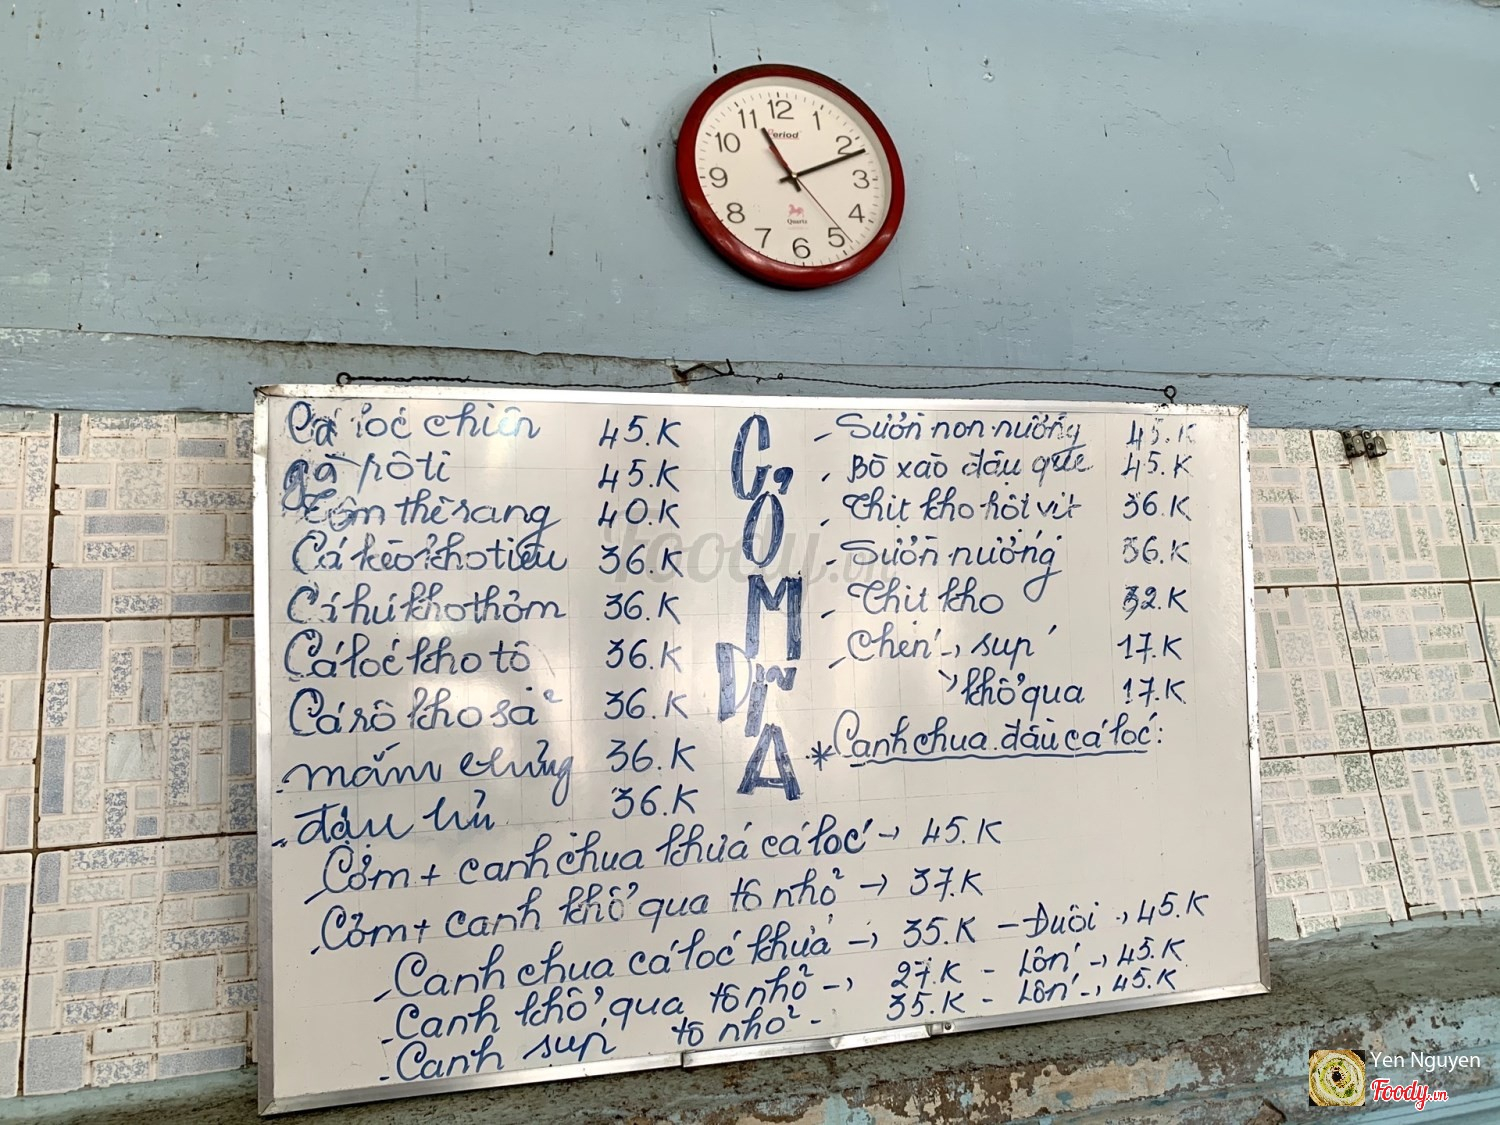 12
1
2
3
4
5
6
7
8
9
10
11
Period
Quartz
Cá lóc chiên 45.K
gà rôti 45.K
Tôm thẻ rang 40.K
Cá kèo kho tiêu 36.K
Cá hú kho thơm 36.K
Cá lóc kho tộ 36.K
Cá rô kho sả 36.K
- mắm chưng 36.K
- đậu hủ 36.K
CƠM
Dĩa
- Sườn non nướng 45.K
- Bò xào đậu que 45.K
- Thịt kho hột vịt 36.K
- Sườn nướng 36.K
- Thịt kho 32.K
- Chén → súp 17.K
→ khổ qua 17.K
* Canh chua đầu cá lóc:
- Cơm + canh chua khứa cá lóc → 45.K
- Cơm + canh khổ qua tô nhỏ → 37.K
- Canh chua cá lóc khứa → 35.K - Đuôi → 45.K
- Canh khổ qua tô nhỏ → 27.K - Lớn → 45.K
- Canh súp tô nhỏ - 35.K - Lớn → 45.K
Foody.vn
Yen Nguyen
Foody.vn